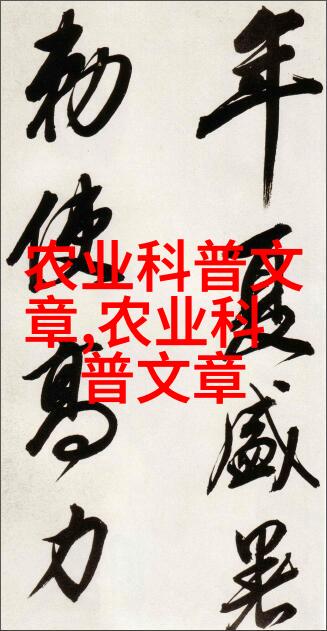 年夏盛暑
勅使高力
农业科普文
章,农业科
普文章